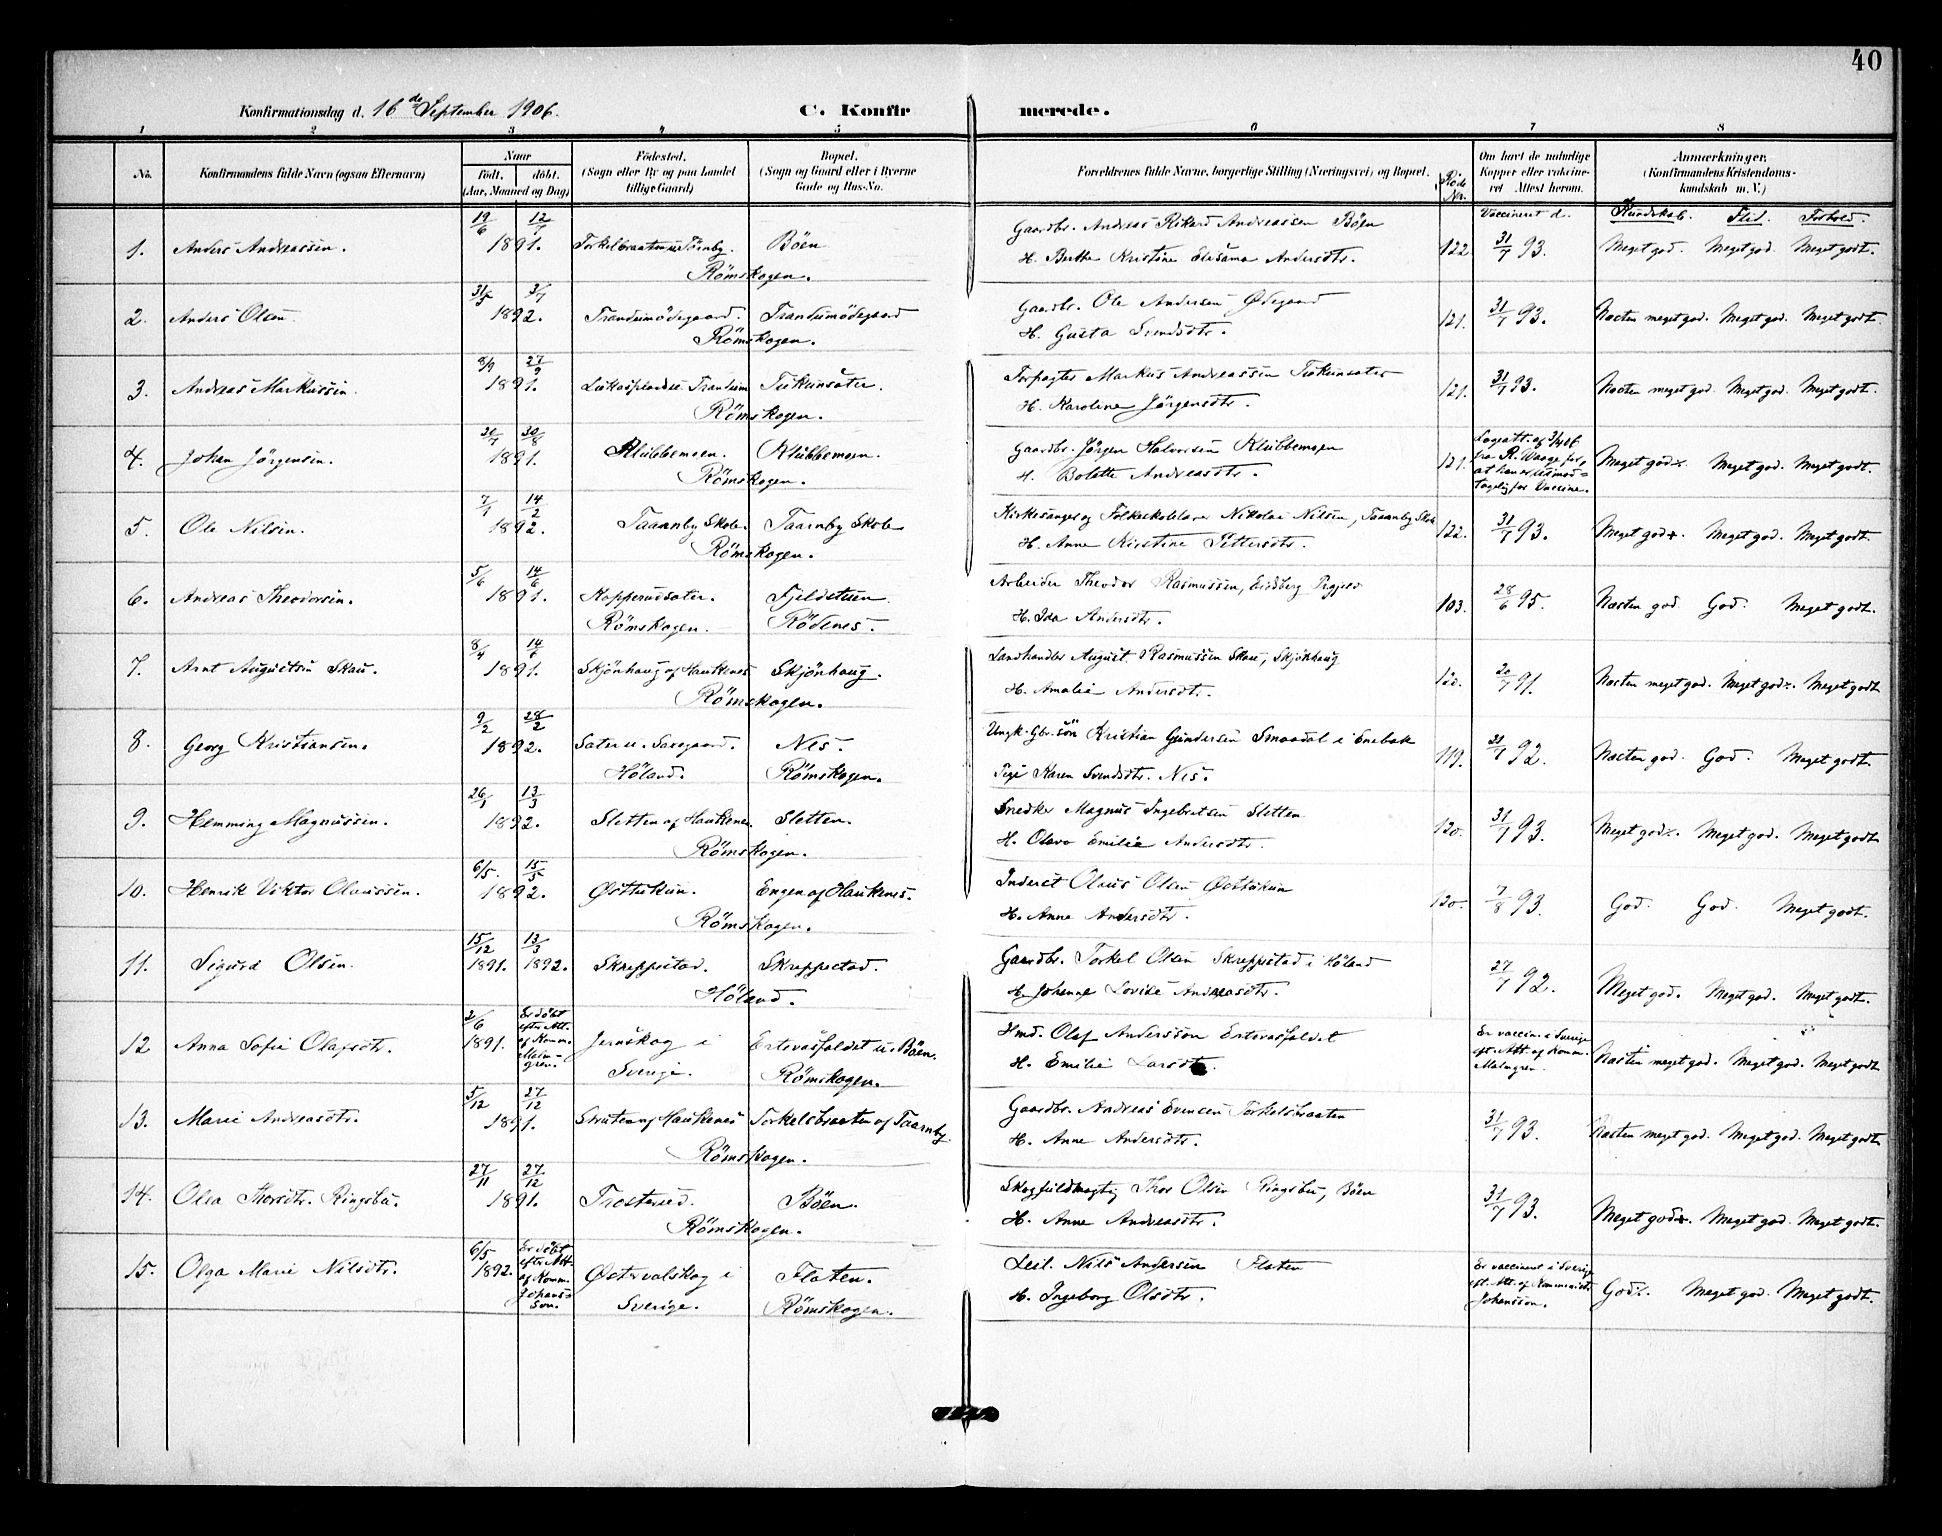 40
Konfirmationsdag d. 16de September 1906.
C. Konfirmerede.
1 2 3 4 5 6 7 8
No. Konfirmandens fulde Navn (ogsaa Efternavn) Naar født, døbt. (Aar, Maaned og Dag) Fødested. (Sogn eller By og paa Landet tillige Gaard) Bopæl. (Sogn og Gaard eller i Byerne Gade og Hus-No. Forældrenes fulde Navne, borgerlige Stilling (Næringsvei) og Bopæl. Om havt de naturlige Kopper eller vaccineret. Attest herom. Anmærkninger. (Konfirmandens Kristendomskundskab m. V.)
Vaccineret d. Kundskab. Flid. Forhold.
19/6 12/7 Gaardbr. Andreas Rikard Andreassen Böen
1. Anders Andreassen. 1891. Böen 122 31/7 93. Meget god. Meget god. Meget godt.
Römskogen. H. Berthe Kristine Andersdtr.
31/5 3/7 Gaardbr. Ole Andersen Ødegaard
2. Anders Olsen 1892. Trandumödegaard. Trandumödegaard 121. 31/7 93. Næsten meget god. Meget god. Meget godt
Römskogen. H. Gusta Svendsdtr.
8/9 27/9 Forpagter Markus Andreassen
3. Andreas Markussen. 1891. 121. 31/7 93. Næsten meget god. Meget god. Meget godt.
Römskogen. H. Karoline Jörgensdtr.
20/7 30/8 Gaardbr. Jörgen Halvorsen Klubbemoen
4. Johan Jörgensen. 1891. Klubbemoen. Klubbemoen. 121. Meget god. Meget god. Meget godt.
Römskogen. H. Bolette Andreasdtr.
7/1 14/2 Kirkesanger og Folkeskolelærer Nikolai Nilsen, Taarnby Skole
5. Ole Nilsen. 1892. Taarnby Skole. Taarnby Skole 122. 31/7 93. Meget god. Meget god. Meget godt.
Römskogen. H. Anne Kirstine Pettersdtr.
5/6 14/6 Arbeider Theodor Rasmussen, Eidsberg
6. Andreas Theodorsen. 1891. Kopperudsæter. Fjeldstuen 103. 28/6 95. Næsten god God. Meget godt.
Römskogen. Rödenes. H. Ida Andersdtr.
8/4 Landhandler August Rasmussen Skau, Skjönhaug
7. Arnt Augustsen Skau. 1891. Skjönhaug af Haukenes Skjönhaug. 120. 20/7 91. Næsten meget god. Meget god. Meget godt
Römskogen. H. Amalie Andersdtr.
9/2 28/2 Ungk. Gbr.sön Kristian Gundersen Smaadal i Enebak
8. Georg Kristiansen. 1892. Nes. 119. 31/7 92. Næsten god God. Meget godt.
Höland. Römskogen. Pige Karen Svendsdtr. Nes.
26/1 13/3 Snedker Magnus Ingebretsen Sletten
9. Hemming Magnussen. 1892. Sletten af Haukenes. Sletten. 120. 31/7 93. Meget god. Meget god. Meget godt
Römskogen. H. Olava Emilie Andersdtr.
6/5. 15/5 Inderst Olaus Olsen
10. Henrik Viktor Olaussen. 1892. Engen af Haukenes. 120. 7/8 93. God. God. Meget godt.
Römskogen. H. Anne Andersdtr.
15/12 13/3 Gaardbr. Torkel Olsen Skreppestad i Höland
11. Sigurd Olsen. 1891. 1892. Skreppestad. Skreppestad. 27/7 92. Meget god. Meget god. Meget godt.
Höland. H. Johanne Lovise Andreasdtr.
2/6 Er döbt efter Att. af Komm. Malmgren. Hmd. Olaf Andersson Ertevasfaldet Er vaccin. i Sverige eft. Att. af Komm. Malmgren.
12 Anna Sofie Olafsdtr. 1891. Jernskog i Ertevasfaldet u. Böen. Næsten meget god. Meget god. Meget godt
Sverige. Römskogen. H. Emilie Larsdtr.
5/12 27/12 Gaardbr. Andreas Evensen Torkelsbraaten
13. Marie Andreasdtr. 1891. Torkelsbraaten af Taarnby. 31/7 93. Næsten meget god. Meget god. Meget godt
Römskogen. H. Anne Andersdtr.
27/11 27/12 Skogfuldmægtig Thor Olsen Ringsbu, Böen
14. Olea Thorsdtr. Ringsbu. 1891. Trosterud. Böen. 31/7 93. Meget god. Meget god. Meget godt.
Römskogen. H. Anne Andreasdtr.
6/5 Er döbt efter Att. af Komm. Johansson. Leil. Nils Andersen Flaten Er vaccineret i Sverige eft. Att. af Kommunister Johansson.
15. Olga Marie Nilsdtr. 1892. Östervalskog i Flaten. God. Meget god. Meget godt.
Sverige. Römskogen. H. Ingeborg Olsdtr.